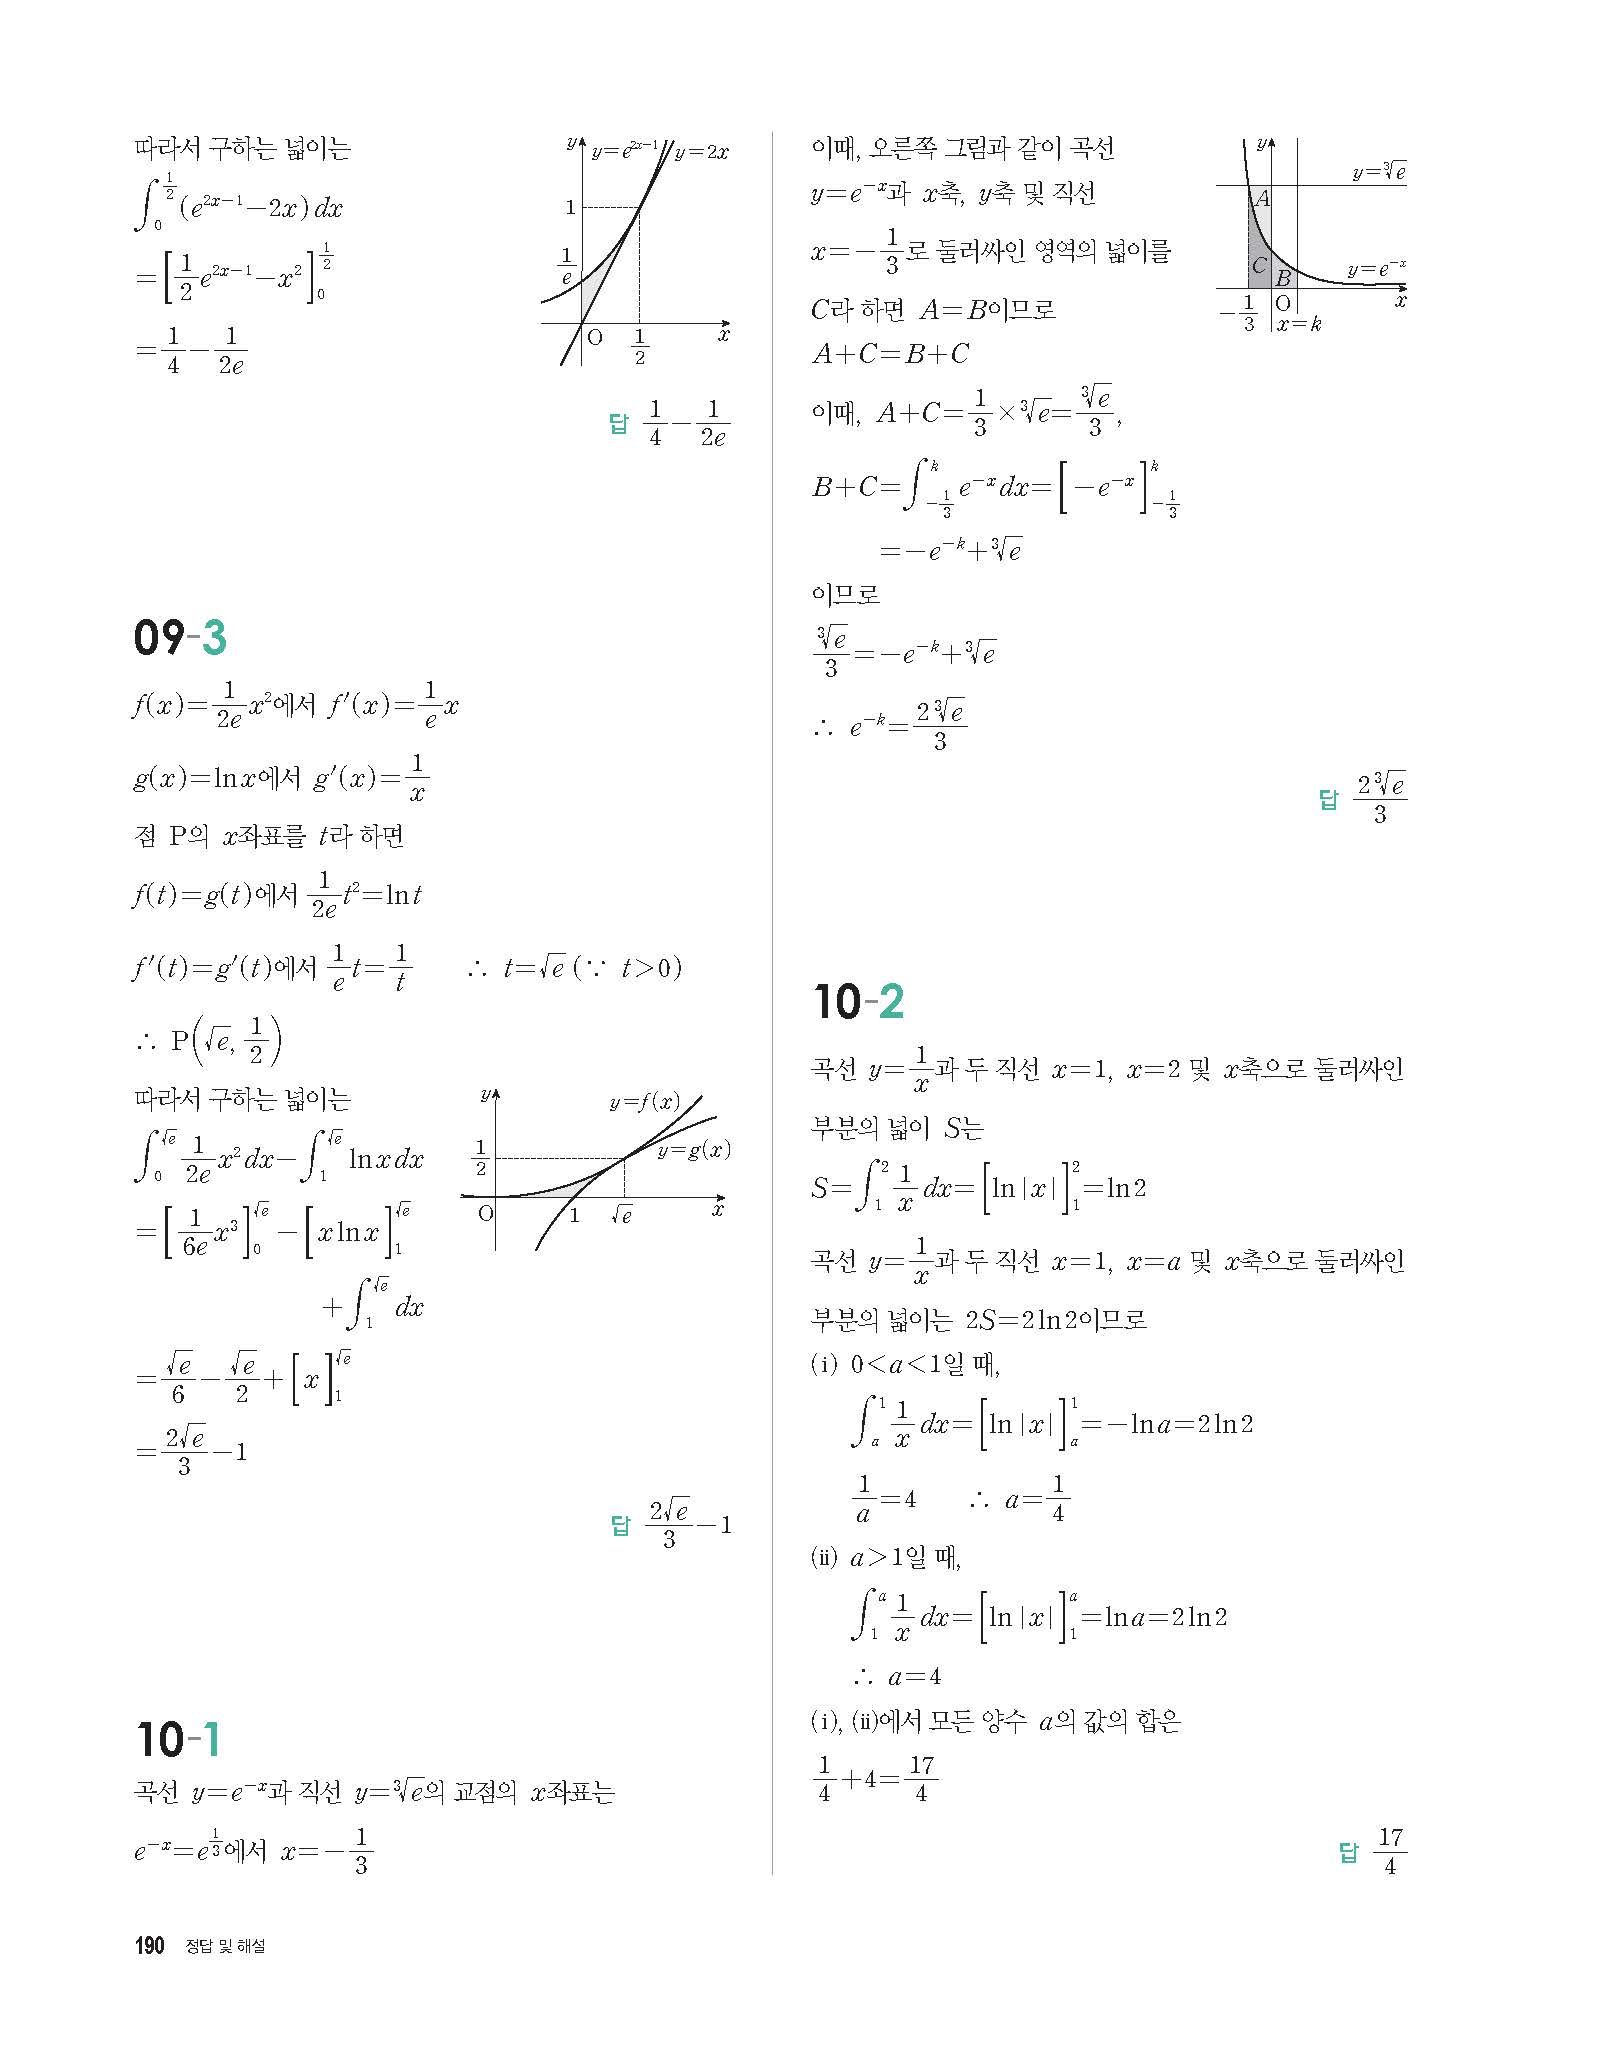 따라서 구하는 넓이는
∫₀^{1/2} (e^{2x−1}−2x)dx
=[1/2 e^{2x−1}−x²]₀^{1/2}
=1/4−1/(2e)
y y=e^{2x−1} y=2x
1
1/e
O 1/2 x
답 1/4−1/(2e)
09-3
f(x)=1/(2e) x²에서 f′(x)=1/e x
g(x)=ln x에서 g′(x)=1/x
점 P의 x좌표를 t라 하면
f(t)=g(t)에서 1/(2e) t²=ln t
f′(t)=g′(t)에서 1/e t=1/t ∴ t=√e (∵ t>0)
∴ P(√e, 1/2)
따라서 구하는 넓이는
∫₀^{√e} 1/(2e) x² dx−∫₁^{√e} ln x dx
=[1/(6e) x³]₀^{√e}−[x ln x]₁^{√e}
+∫₁^{√e} dx
=√e/6−√e/2+[x]₁^{√e}
=2√e/3−1
y y=f(x)
1/2 y=g(x)
O 1 √e x
답 2√e/3−1
10-1
곡선 y=e^{−x}과 직선 y=∛e의 교점의 x좌표는
e^{−x}=e^{1/3}에서 x=−1/3
이때, 오른쪽 그림과 같이 곡선
y=e^{−x}과 x축, y축 및 직선
x=−1/3로 둘러싸인 영역의 넓이를
C라 하면 A=B이므로
A+C=B+C
y
y=∛e
A
C B y=e^{−x}
−1/3 O x
x=k
이때, A+C=1/3×∛e=∛e/3,
B+C=∫_{−1/3}^{k} e^{−x} dx=[−e^{−x}]_{−1/3}^{k}
=−e^{−k}+∛e
이므로
∛e/3=−e^{−k}+∛e
∴ e^{−k}=2∛e/3
답 2∛e/3
10-2
곡선 y=1/x과 두 직선 x=1, x=2 및 x축으로 둘러싸인
부분의 넓이 S는
S=∫₁² 1/x dx=[ln|x|]₁²=ln 2
곡선 y=1/x과 두 직선 x=1, x=a 및 x축으로 둘러싸인
부분의 넓이는 2S=2 ln 2이므로
(ⅰ) 0<a<1일 때,
∫_a^1 1/x dx=[ln|x|]_a^1=−ln a=2 ln 2
1/a=4 ∴ a=1/4
(ⅱ) a>1일 때,
∫_1^a 1/x dx=[ln|x|]_1^a=ln a=2 ln 2
∴ a=4
(ⅰ), (ⅱ)에서 모든 양수 a의 값의 합은
1/4+4=17/4
답 17/4
190 정답 및 해설